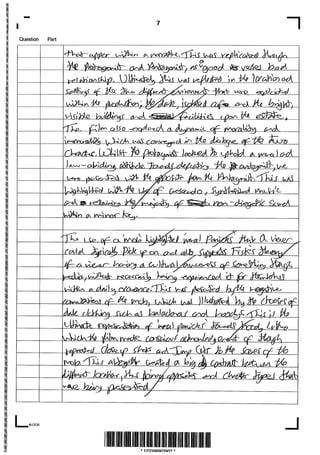 7
Question Part
that appear within a narrative. This was replicated through
the Protagonist and Antagonist, as 'good vs verses bad
relationship. Ultimately, this was reflected in the location and
settings of the two different environments that were explicited
within the production; the dark, isolated cafe and the bright,
visible buildings and facilities upon the estate.
The film also explored a dynamic of morality and
immorality which was conveyed in the dialoge of the two
Characters. Whilst the protagonist looked to uphold a moral and
law-abiding attitude towards defeating the antagonist, we
were presented with the opposite from the Antagonist. This was
highlighted with the use of, Synthesized music
and a majority of non-diegetic sound
within a minor key.
The use of a mob highlighted moral Panicks that a viewer
could typically Pick up on and also supports Fisk's theory
of a viewer having a cultural awareness of something through
media, without necessarily having experienced it for themselves
within a daily occurence. This was presented by the negative
connotations of the mob, which was Illustrated by the choices of
dark clothing such as balaclavas and hoody's. This is the
ultimate representation of moral panicks towards
which the film made constant acknowledgement of through
repeated Close up shots and Jump Cuts to the faces of the
mob. This altogether created a big contrast between the
different location, thus opposites and character types that
are being presented